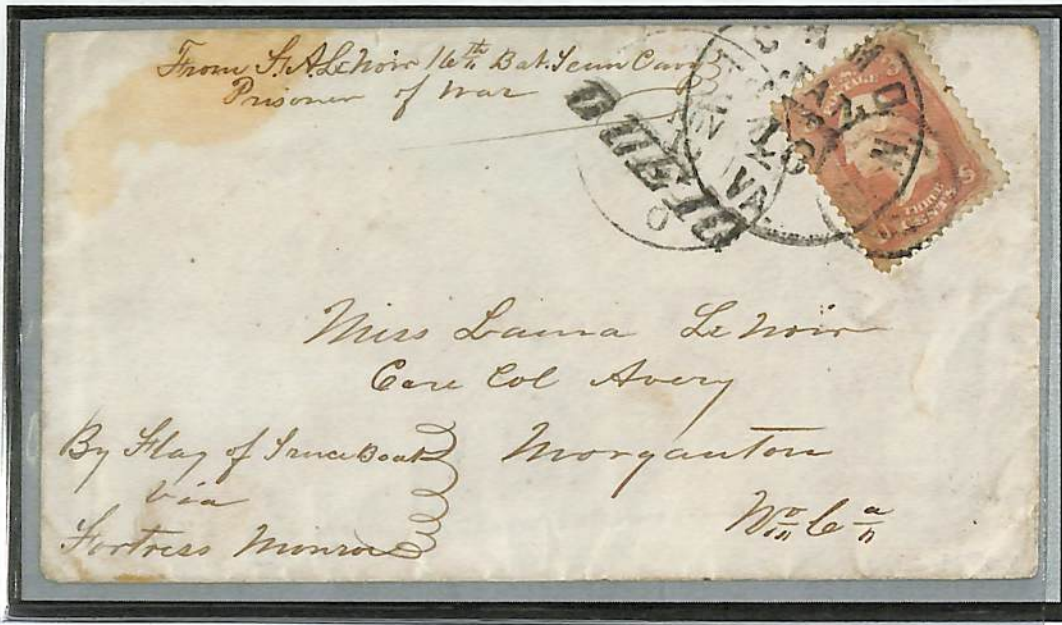 From S. A. LeNoir 16th Bat. Tenn Cav
Prisoner of War
DUE 10
RICHMOND VA.
POSTAGE
THREE
CENTS
Miss Laura LeNoir
Care Col Avery
Morganton
No Ca
By Flag of Truce Boat
via
Fortress Monroe